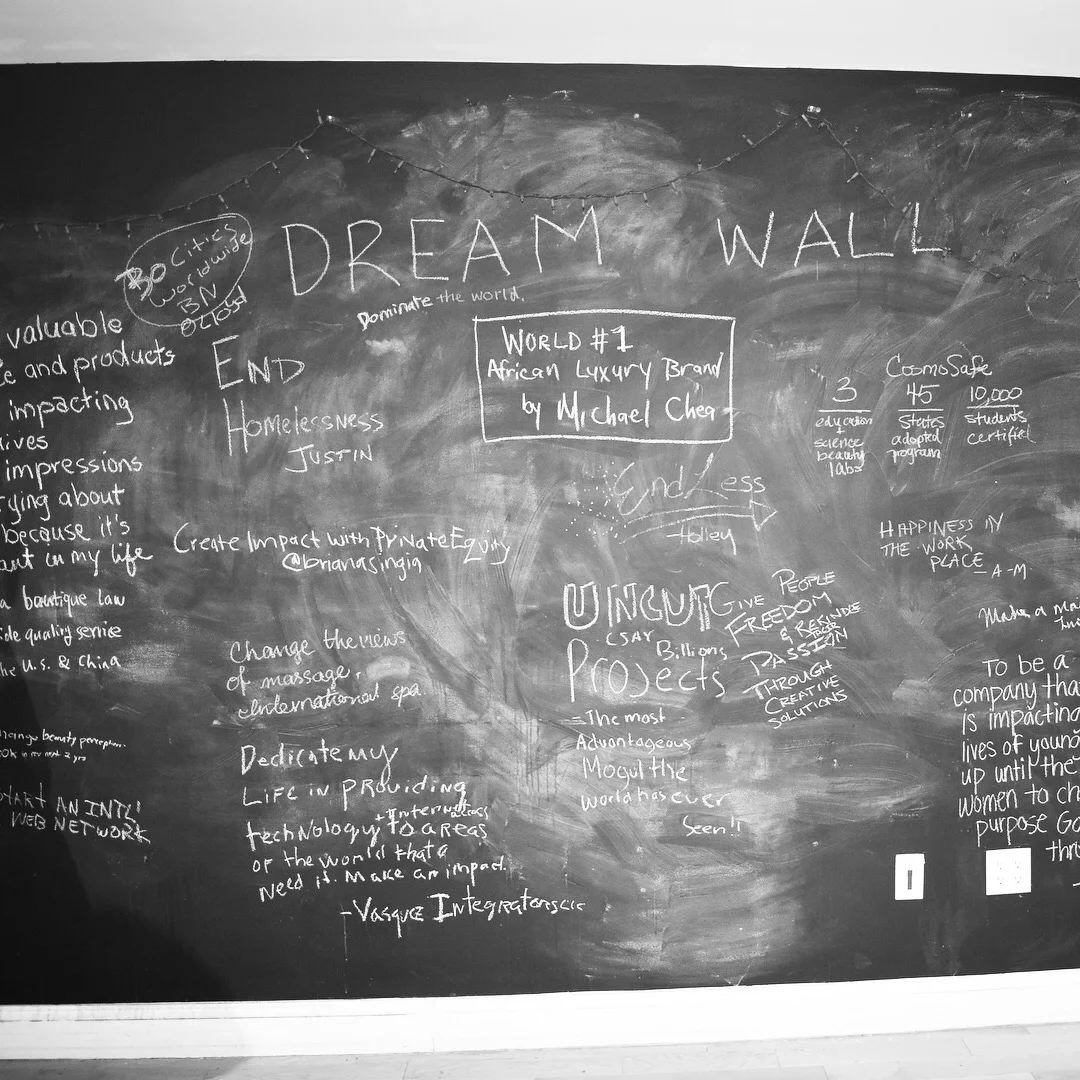 DREAM WALL
Cities
Worldwide
BN
Dominate the world.
valuable
and products
impacting
impressions
about
because it's
in my life
a boutique law
quality service
the U.S. & China
beauty perception
START AN INTL'
WEB NETWORK
END
HOMELESSNESS
JUSTIN
Create Impact with Private Equity
@brianasingia
Change the views
of massage.
International spa.
Dedicate my
Life in providing
+ Internet access
technology to areas
of the world that a
need it. Make an impact.
-Vasquez Integrators
WORLD #1
African Luxury Brand
by Michael Chea
EndLess
-Holley
UNCUT
CSAY
Billions
Projects
- The most
Advantageous
Mogul the
world has ever
seen!!
GIVE PEOPLE
FREEDOM
& REKINDLE
THEIR
PASSION
THROUGH
CREATIVE
SOLUTIONS
CosmoSafe
3
education
+
science
beauty
labs
45
States
adopted
program
10,000
students
certified
HAPPINESS IN
THE WORK
PLACE
- A-M
Make a
To be a
company that
is impacting
lives of young
up until the
women to
purpose